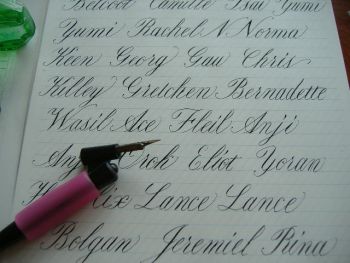 Belcoot Camille Tsai Yumi
Yumi Rachel N. Norma
Keen Georg Gau Chris
Killey Gretchen Bernadette
Wasil Ace Fleil Anji
Orok Eliot Yoran
Lance Lance
Bolgan Jeremiel Rina